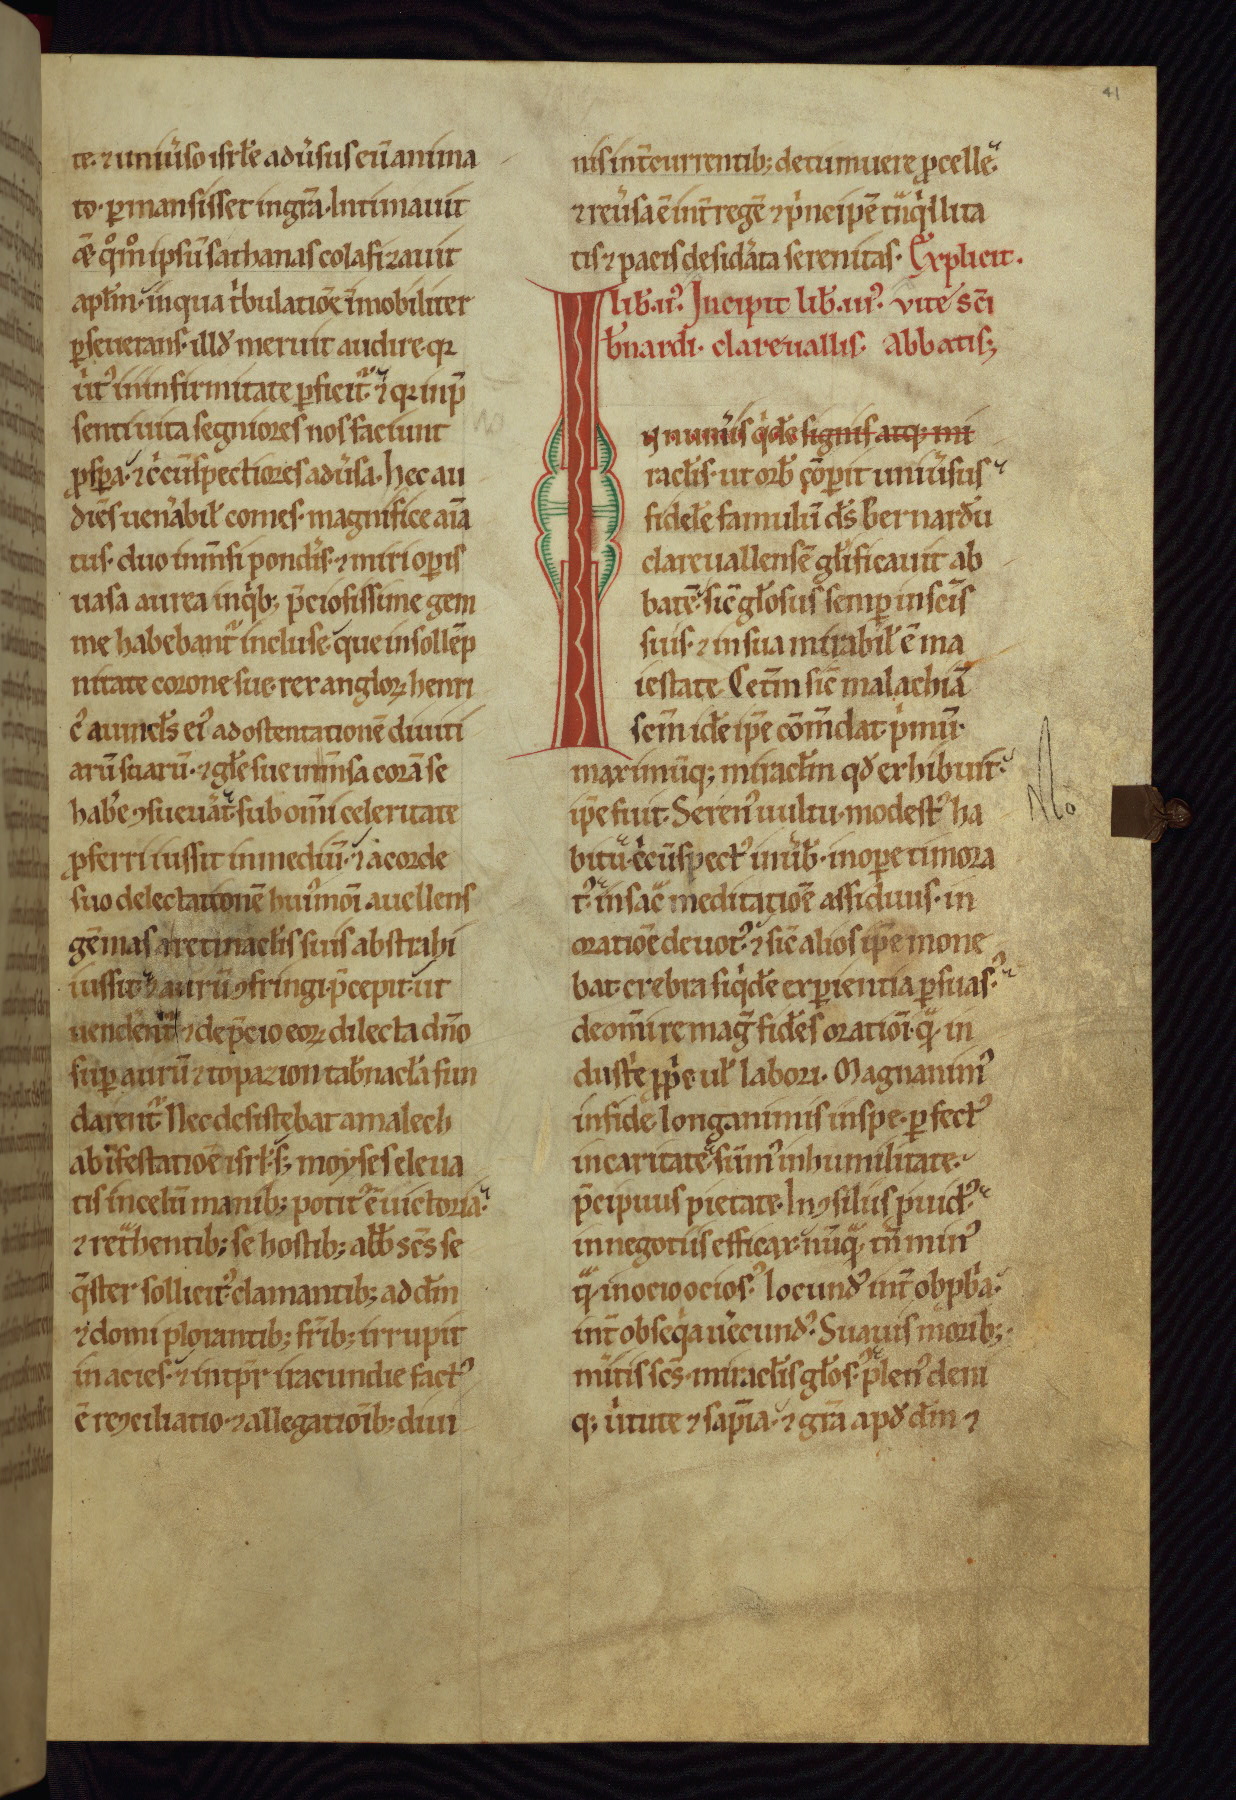 41
te. ⁊ uniũso isrłe adũsus eũ anima
to. ꝑmansisset in gr̃a. Intimauit
ẽ. qm̃ ipsũ sathanas colafizauit
apłm. in qua t'bulatiõe ĩmobiliter
ꝑseuerans. illđ meruit audire. qꝛ
ũt' in infirmitate ꝑficit̃. ⁊ qꝛ in p̃
senti uita segniores nos faciunt
ꝓsꝑa. ⁊ c̃cũspectiores adũsa. Hec au
diẽs uen̾abił comes. magnifice aĩa
tus. duo inm̃si pondĩs. ⁊ miri oꝑis
uasa aurea in q'b; p̃ciosissime gem
me habebant̃ incluse. que in sollẽp
nitate corone sue. rex angloꝝ henri
c᾽ auuncłs ei᾽ ad ostentationẽ diuiti
arũ suarũ. ⁊ głe sue inm̃sa corã se
hab̃e ꝯsueuãt. sub om̃i celeritate
ꝓferri iussit in mediũ. ⁊ a corde
suo delectationẽ hui᾽moĩ auellens
gẽmas a retinacłis suis abstrahi
iussit. ⁊ aurũ ꝯfringi. p̃cepit. ut
uendẽnt̃. ⁊ de p̃cio eoꝝ dilecta dño
suꝑ aurũ ⁊ topazion tab̃nacła fun
darent̃. Nec desistebat amalech
ab ĩfestatiõe isrł's; moyses eleua
tis in celũ manib; potit᾽ ẽ uictoria.
⁊ ret̃hentib; se hostib; abb̃ sc̃s se
q̃ster sollicit᾽ clamantib; ad dm̃
⁊ domi plorantib; fr̃ib; irrupit
in acies. ⁊ int̾p̃r iracundie fact᾽
ẽ reꝯciliatio. ⁊ allegatiõib; diui
nis int̃currentib; detumuere ꝓcelle.
⁊ reũsa ẽ int̃ regẽ ⁊ p'ncipẽ t̃nq'llita
tis ⁊ pacis desid̾ata serenitas. Explicit.
lib̃. ii᾽. Incipit lib̃. iii᾽. vite sc̃i
b̃nardi. clareuallis. Abbatis;
Innum̾is q'de signis atq; mi
racłis. ut orb̃ cõꝑit uniũsus
fidele famulũ dĩ bernardũ
clareuallensẽ głificauit ab
batẽ. sic̃ głosus semꝑ in sc̃is
suis. ⁊ in sua mirabił ẽ ma
iestate. Cet̾m sic̃ malachiã
sc̃m idẽ ip̃e cõm̃dat p'mũ.
maximũq; miracłm qđ exhibuit.
ip̃e fuit. Seren᾽ uultu. modest᾽ ha
bitu. c̃cũspect᾽ in ũb̃. in oꝑe timora
t᾽. in sac̃ meditatiõe assiduus. in
oratiõe deuot᾽. ⁊ sic̃ alios ip̃e mone
bat. crebra siq'dẽ exꝑientia ꝑsuas᾽.
de om̃i re mag̃ fidẽs oratiõi. q̃ in
dust̾e ꝓp'e uł labori. Magnanim᾽
in fide. longanimis in spe. ꝑfect᾽
in caritate. sũm᾽ in humilitate.
p̃cipuus pietate. In ꝯsiliis ꝓuid᾽.
in negotiis efficax. nũq̃. tm̃ min᾽
q̃. in ocio ocios᾽. Iocund᾽ int̃ obꝓb̃a.
int̃ obseq'a uẽcund᾽. Suauis morib;.
m̃itis sc̃s. miracłis głos᾽. plen᾽ deni
q; ũtute ⁊ sap̃ia. ⁊ gr̃a apđ dm̃ ⁊